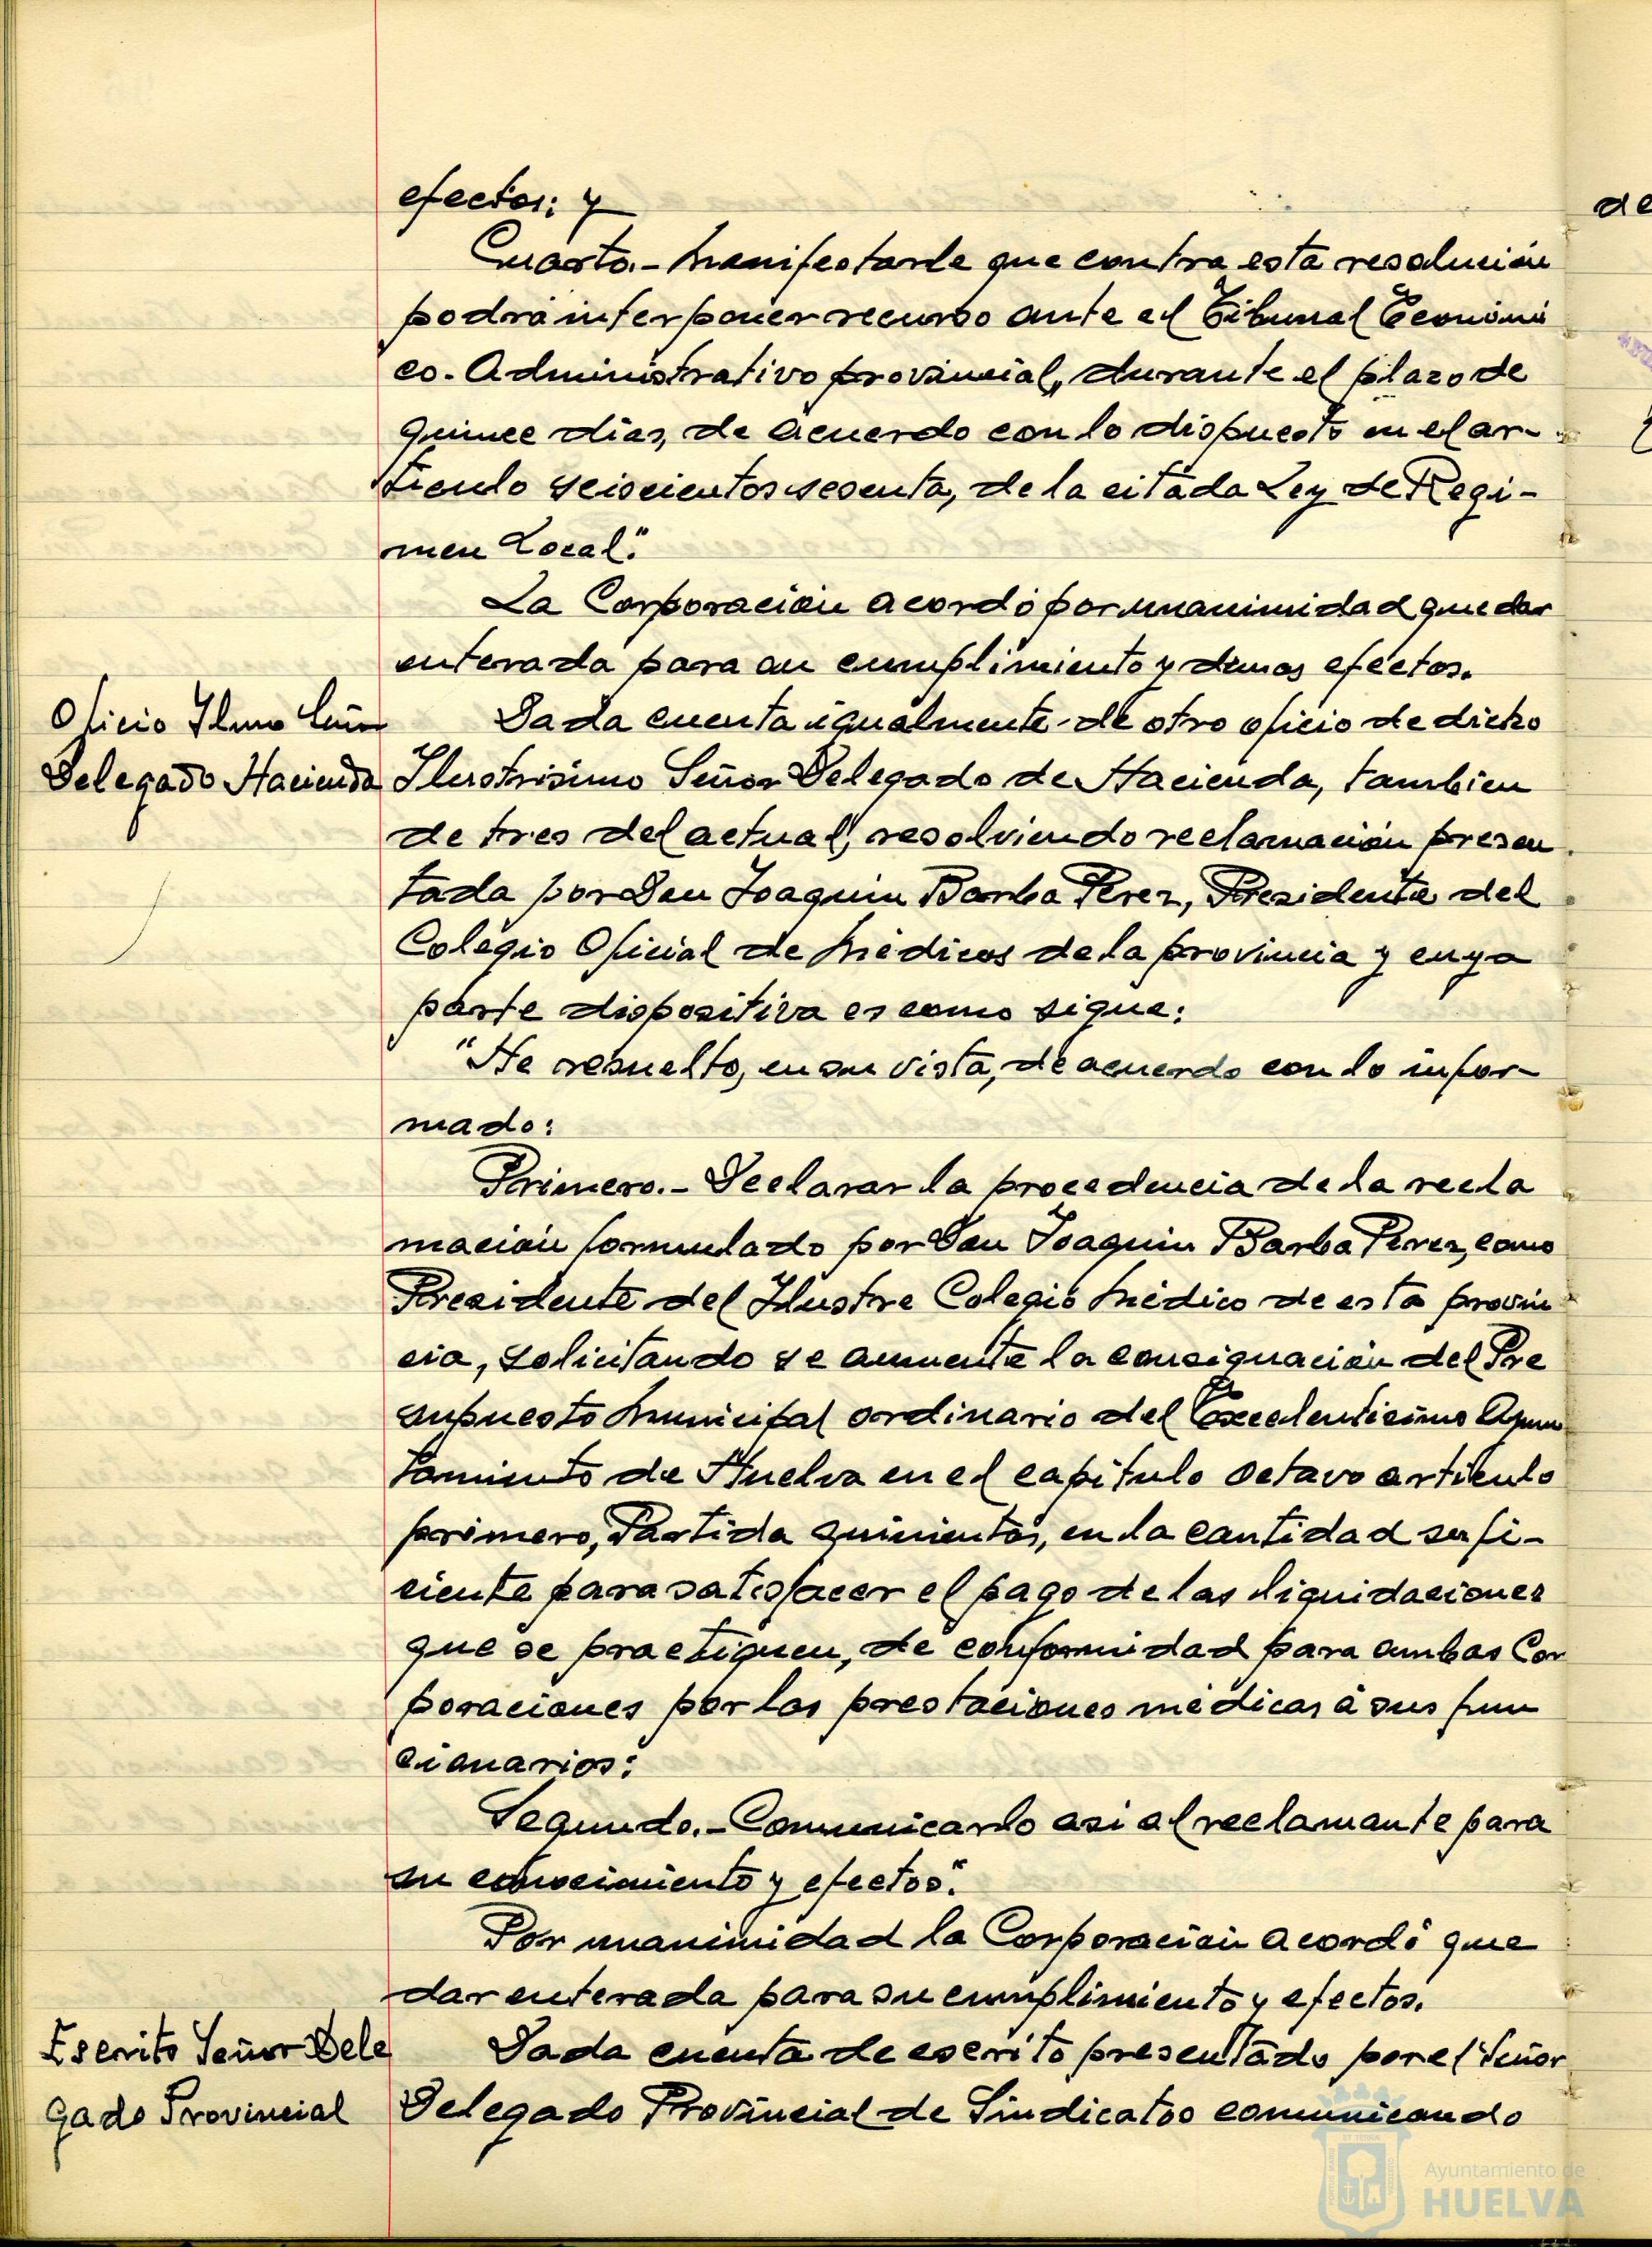 efectos; y
de
Cuarto.- Manifestarle que contra esta resolución
podrá interponer recurso ante el Tribunal Económi
co-Administrativo provincial, durante el plazo de
quince días, de acuerdo con lo dispuesto en el ar-
tículo seiscientos sesenta, de la citada Ley de Regi-
men Local."
La Corporación acordó por unanimidad quedar
enterada para su cumplimiento y demas efectos.
Oficio Ilmo Señor
Delegado Hacienda
Dada cuenta igualmente de otro oficio de dicho
Ilustrisimo Señor Delegado de Hacienda, tambien
de tres del actual, resolviendo reclamación presen
tada por Don Joaquin Barba Perez, Presidente del
Colegio Oficial de Médicos de la provincia y cuya
parte dispositiva es como sigue:
"He resuelto, en su vista, de acuerdo con lo infor-
mado:
Primero.- Declarar la procedencia de la recla
mación formulado por Don Joaquin Barba Perez, como
Presidente del Ilustre Colegio Médico de esta provin
cia, solicitando se aumente la consignación del Pre
supuesto Municipal ordinario del Excelentisimo Ayun
tamiento de Huelva en el capítulo octavo artículo
primero, Partida quinientos, en la cantidad sufi-
ciente para satisfacer el pago de las liquidaciones
que se practiquen, de conformidad para ambas Cor
poraciones por las prestaciones médicas á sus fun
cionarios:
Segundo.- Comunicarlo asi al reclamante para
su conocimiento y efectos."
Por unanimidad la Corporación acordó que
dar enterada para su cumplimiento y efectos.
Escrito Señor Dele
gado Provincial
Dada cuenta de escrito presentado por el Señor
Delegado Provincial de Sindicatos comunicando
Ayuntamiento de
HUELVA